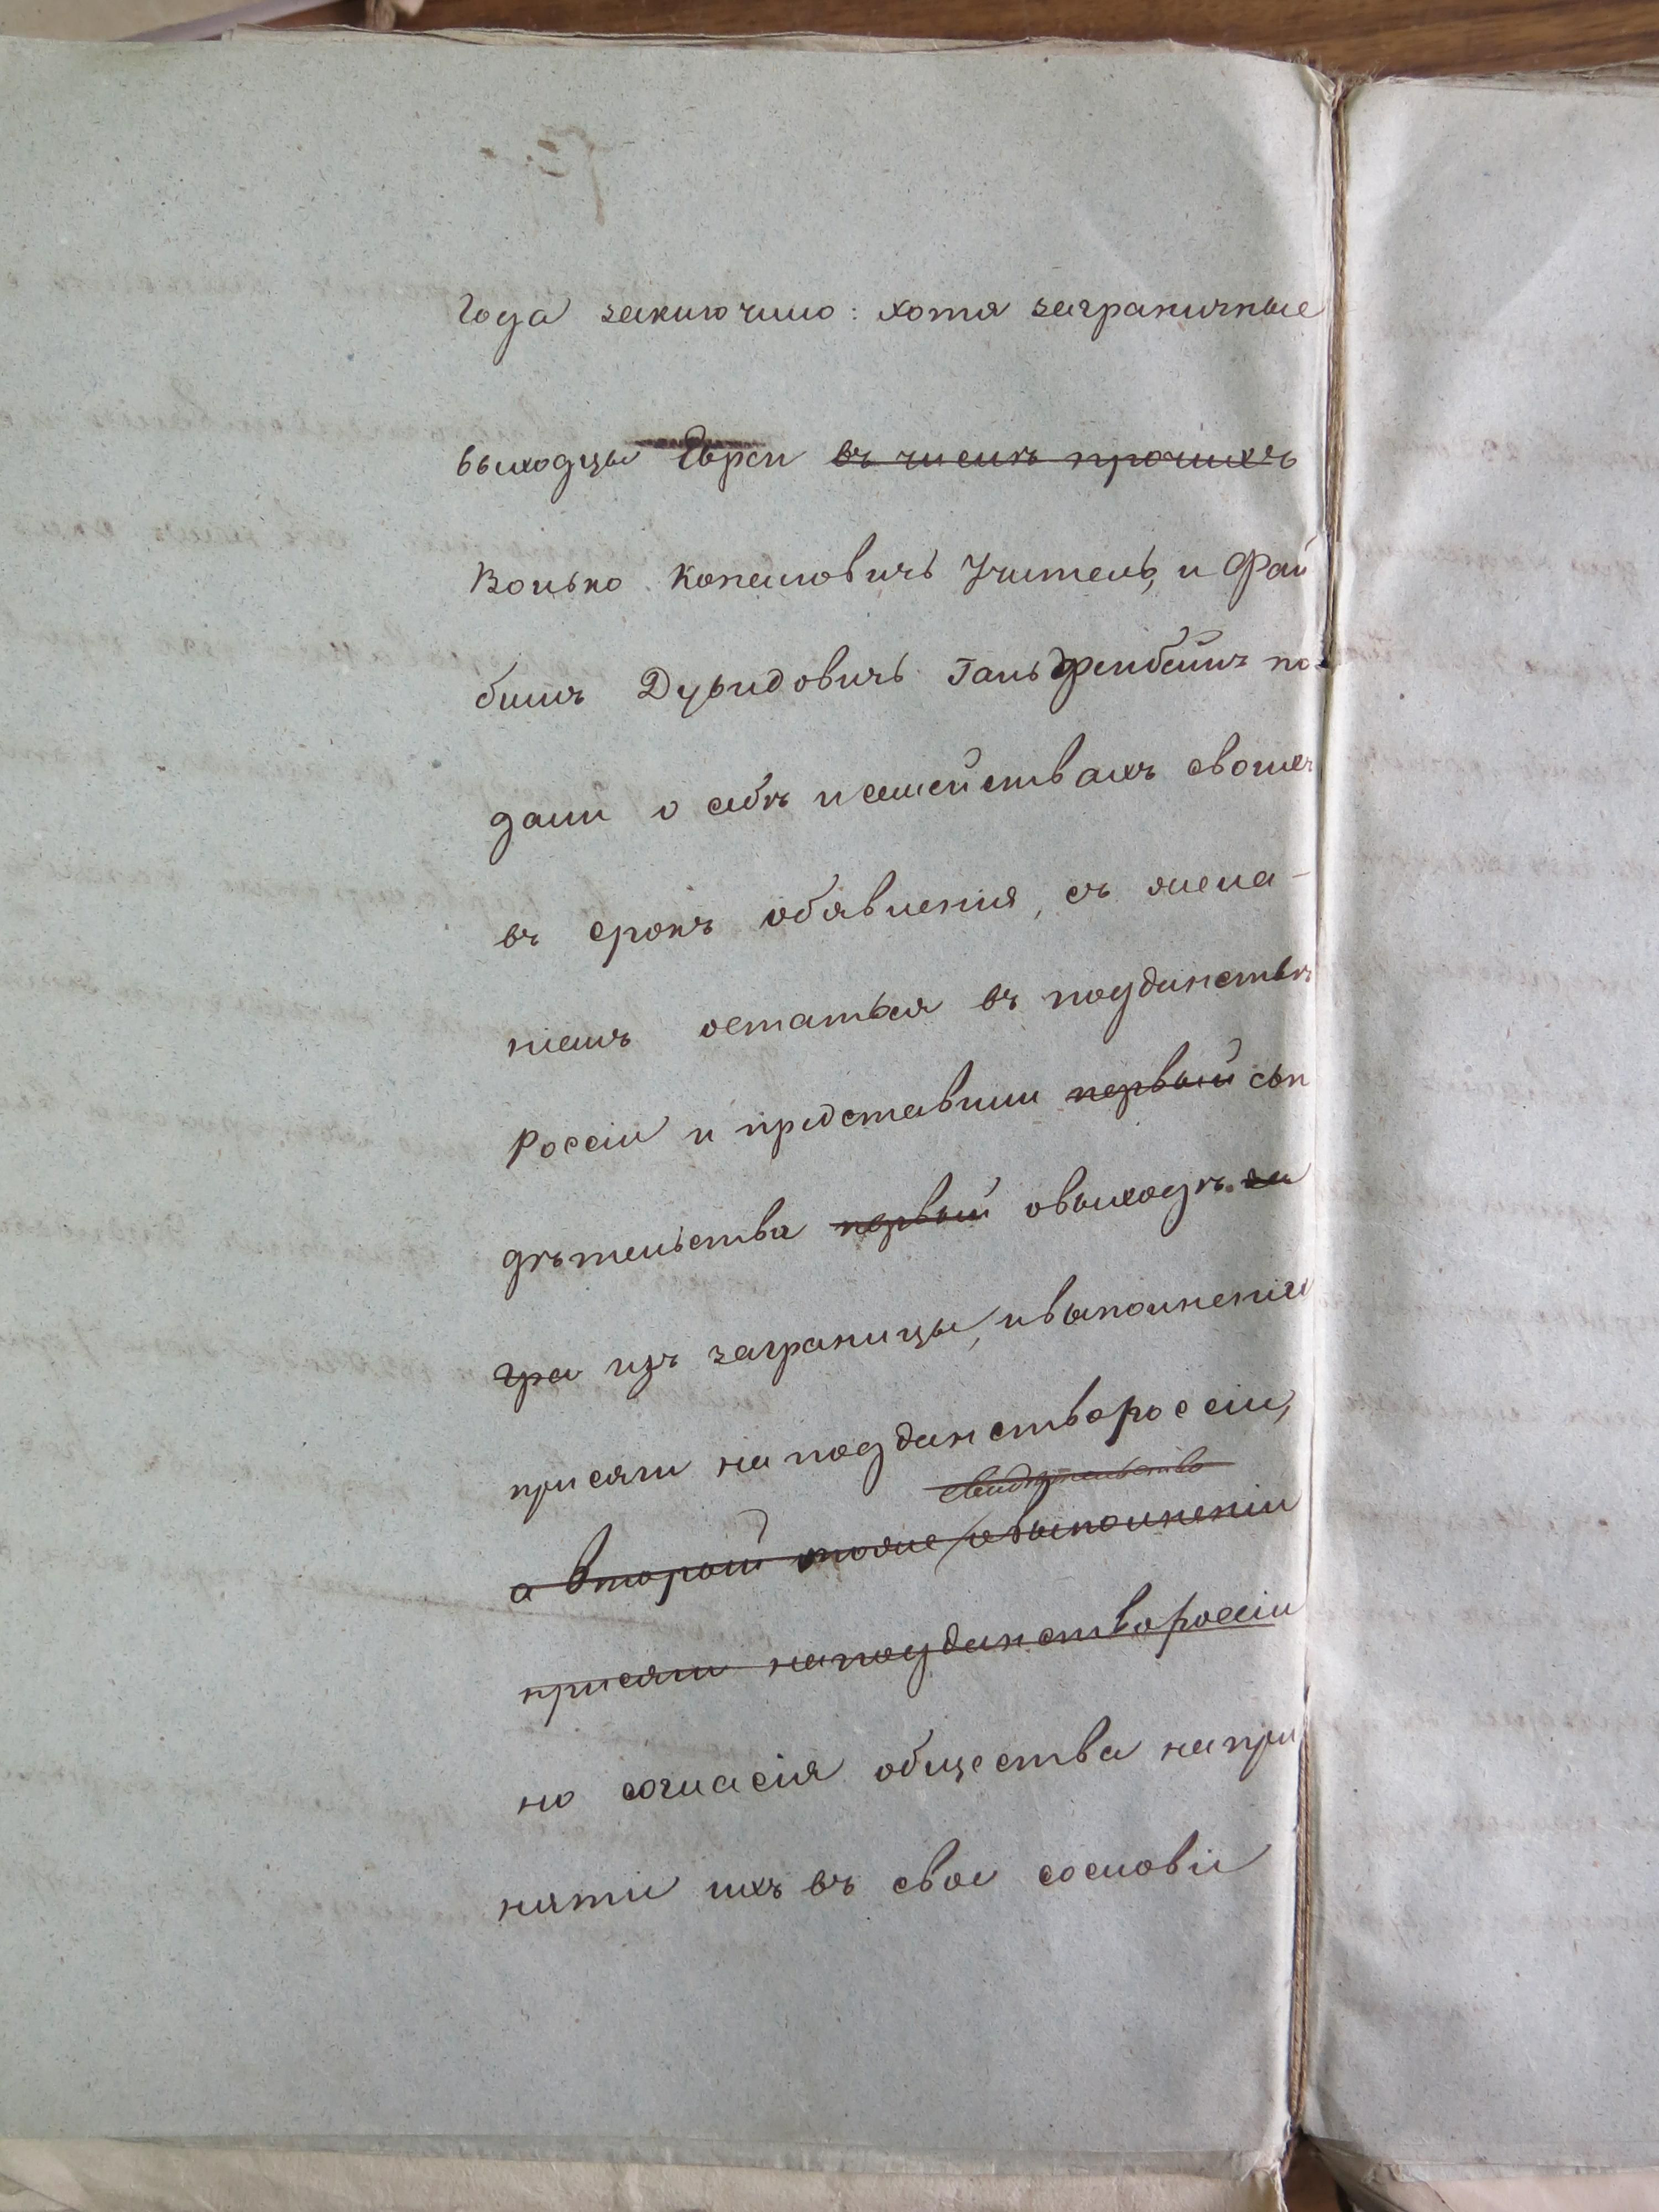 года заключило: хотя заграничные
выходцы Евреи въ числѣ прочихъ
Волько Копелевичъ Учитель, и Фай
бишъ Дувидовичъ Гальфенбейнъ по-
дали о себѣ и семействахъ своихъ
въ срокъ обявления, съ жела-
ніемъ остаться въ подданствѣ
Россіи и представили первый сви
дѣтельства первый о выходѣ за
гра изъ заграницы, и выполненіи
присяги на подданство россіи,
свидѣтельство
а второй тоже о выполненіи
присяги на подданство россіи
но согласія общества на при
нятіе ихъ въ свое сословіе